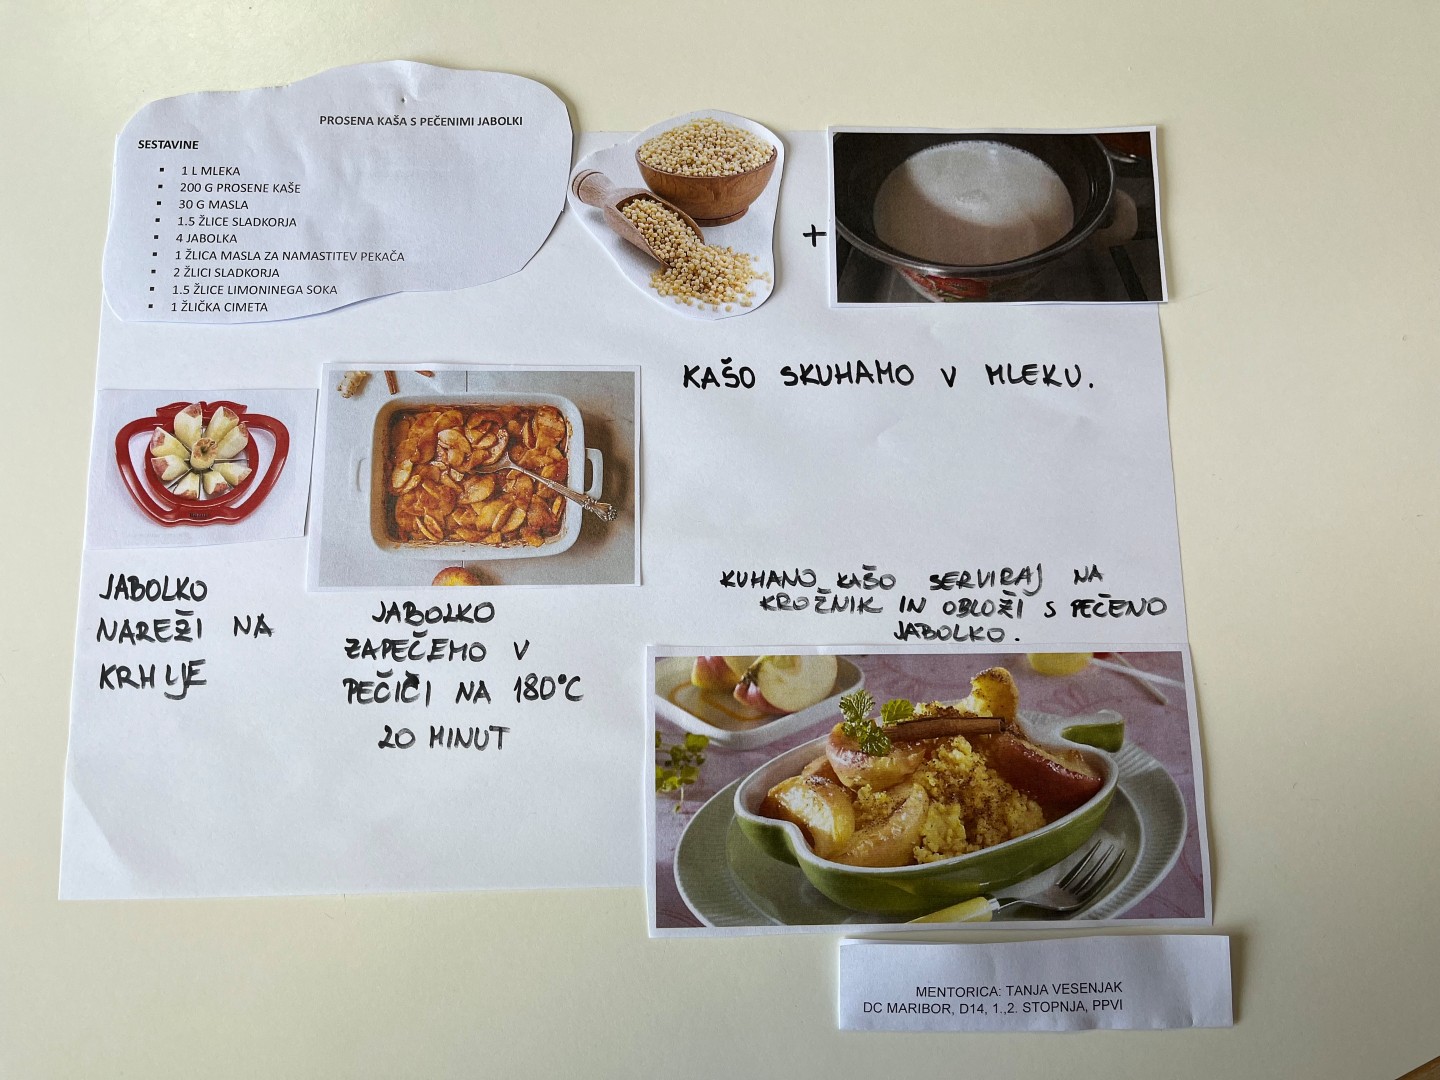 PROSENA KAŠA S PEČENIMI JABOLKI
SESTAVINE
▪ 1 L MLEKA
▪ 200 G PROSENE KAŠE
▪ 30 G MASLA
▪ 1.5 ŽLICE SLADKORJA
▪ 4 JABOLKA
▪ 1 ŽLICA MASLA ZA NAMASTITEV PEKAČA
▪ 2 ŽLICI SLADKORJA
▪ 1.5 ŽLICE LIMONINEGA SOKA
▪ 1 ŽLIČKA CIMETA
+
KAŠO SKUHAMO V MLEKU.
JABOLKO
NAREŽI NA
KRHLJE
JABOLKO
ZAPEČEMO V
PEČICI NA 180°C
20 MINUT
KUHANO KAŠO SERVIRAJ NA
KROŽNIK IN OBLOŽI S PEČENO
JABOLKO.
MENTORICA: TANJA VESENJAK
DC MARIBOR, D14, 1.,2. STOPNJA, PPVI